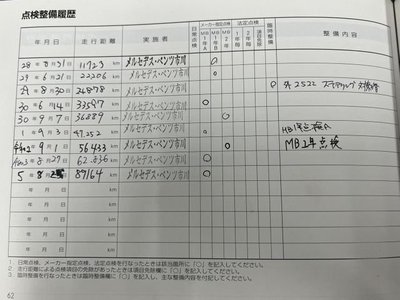 点検整備履歴
年月日 走行距離 実施者 日常点検 メーカー指定点検 MB1年A MB1年B MB2年 法定点検 1年 2年 項目免除 臨時整備 整備内容
28年8月31日 11723 km メルセデス・ベンツ市川 ○
29年6月21日 22206 km メルセデス・ベンツ市川 ○
29年8月30日 24878 km メルセデス・ベンツ市川 ステアリング
30年6月14日 33597 km メルセデス・ベンツ市川 ○
30年9月7日 36289 km メルセデス・ベンツ市川 ○
1年9月3日 47,252 km メルセデス・ベンツ市川 ○ MB1年点検A
令和2年9月1日 56433 km メルセデス・ベンツ市川 MB2年点検
3年8月27日 62,836 km メルセデス・ベンツ市川 ○
5年8月 日 89164 km メルセデス・ベンツ市川 ○
年月日 km
年月日 km
年月日 km
年月日 km
1. 日常点検、メーカー指定点検、法定点検を行なったときは該当箇所に「○」を記入してください。
2. 走行距離による点検項目の免除があったときは項目免除欄に「○」を記入してください。
3. 臨時整備を行なったときは臨時整備欄に「○」を記入し、主な整備内容を付記してください。
62